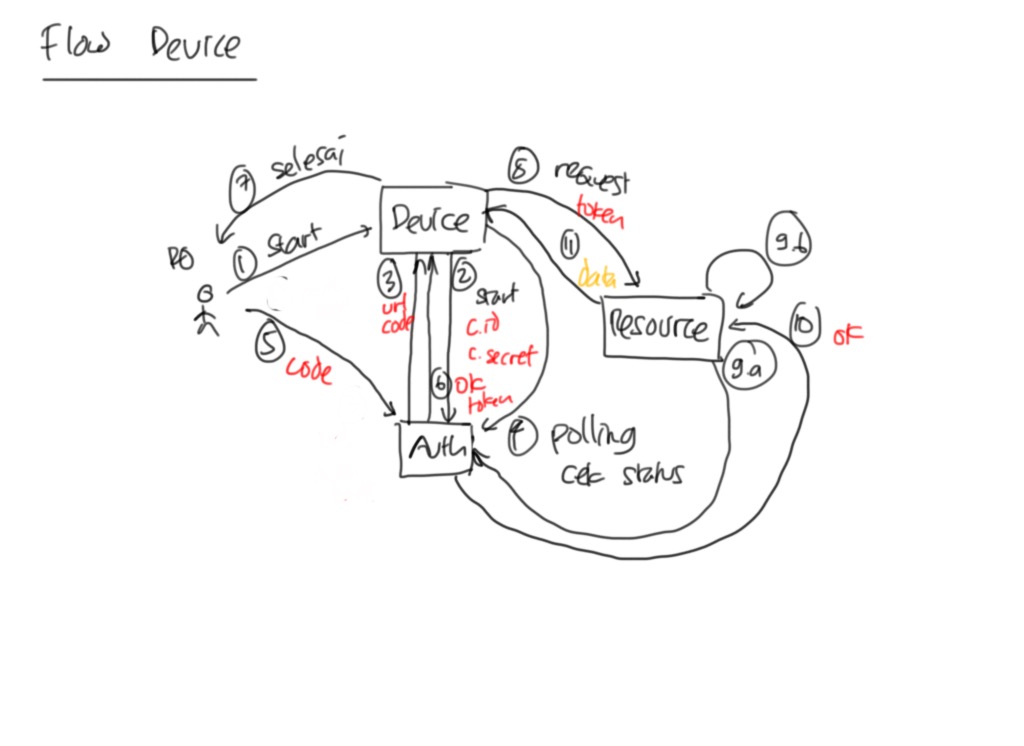 Flow Device
7 selesai
8 request
token
Device
RO
1 start
11
data
9.b
3
url
code
2
start
c.id
c. secret
Resource
10 ok
5
code
6 ok
token
9.a
Auth
4 polling
cek status